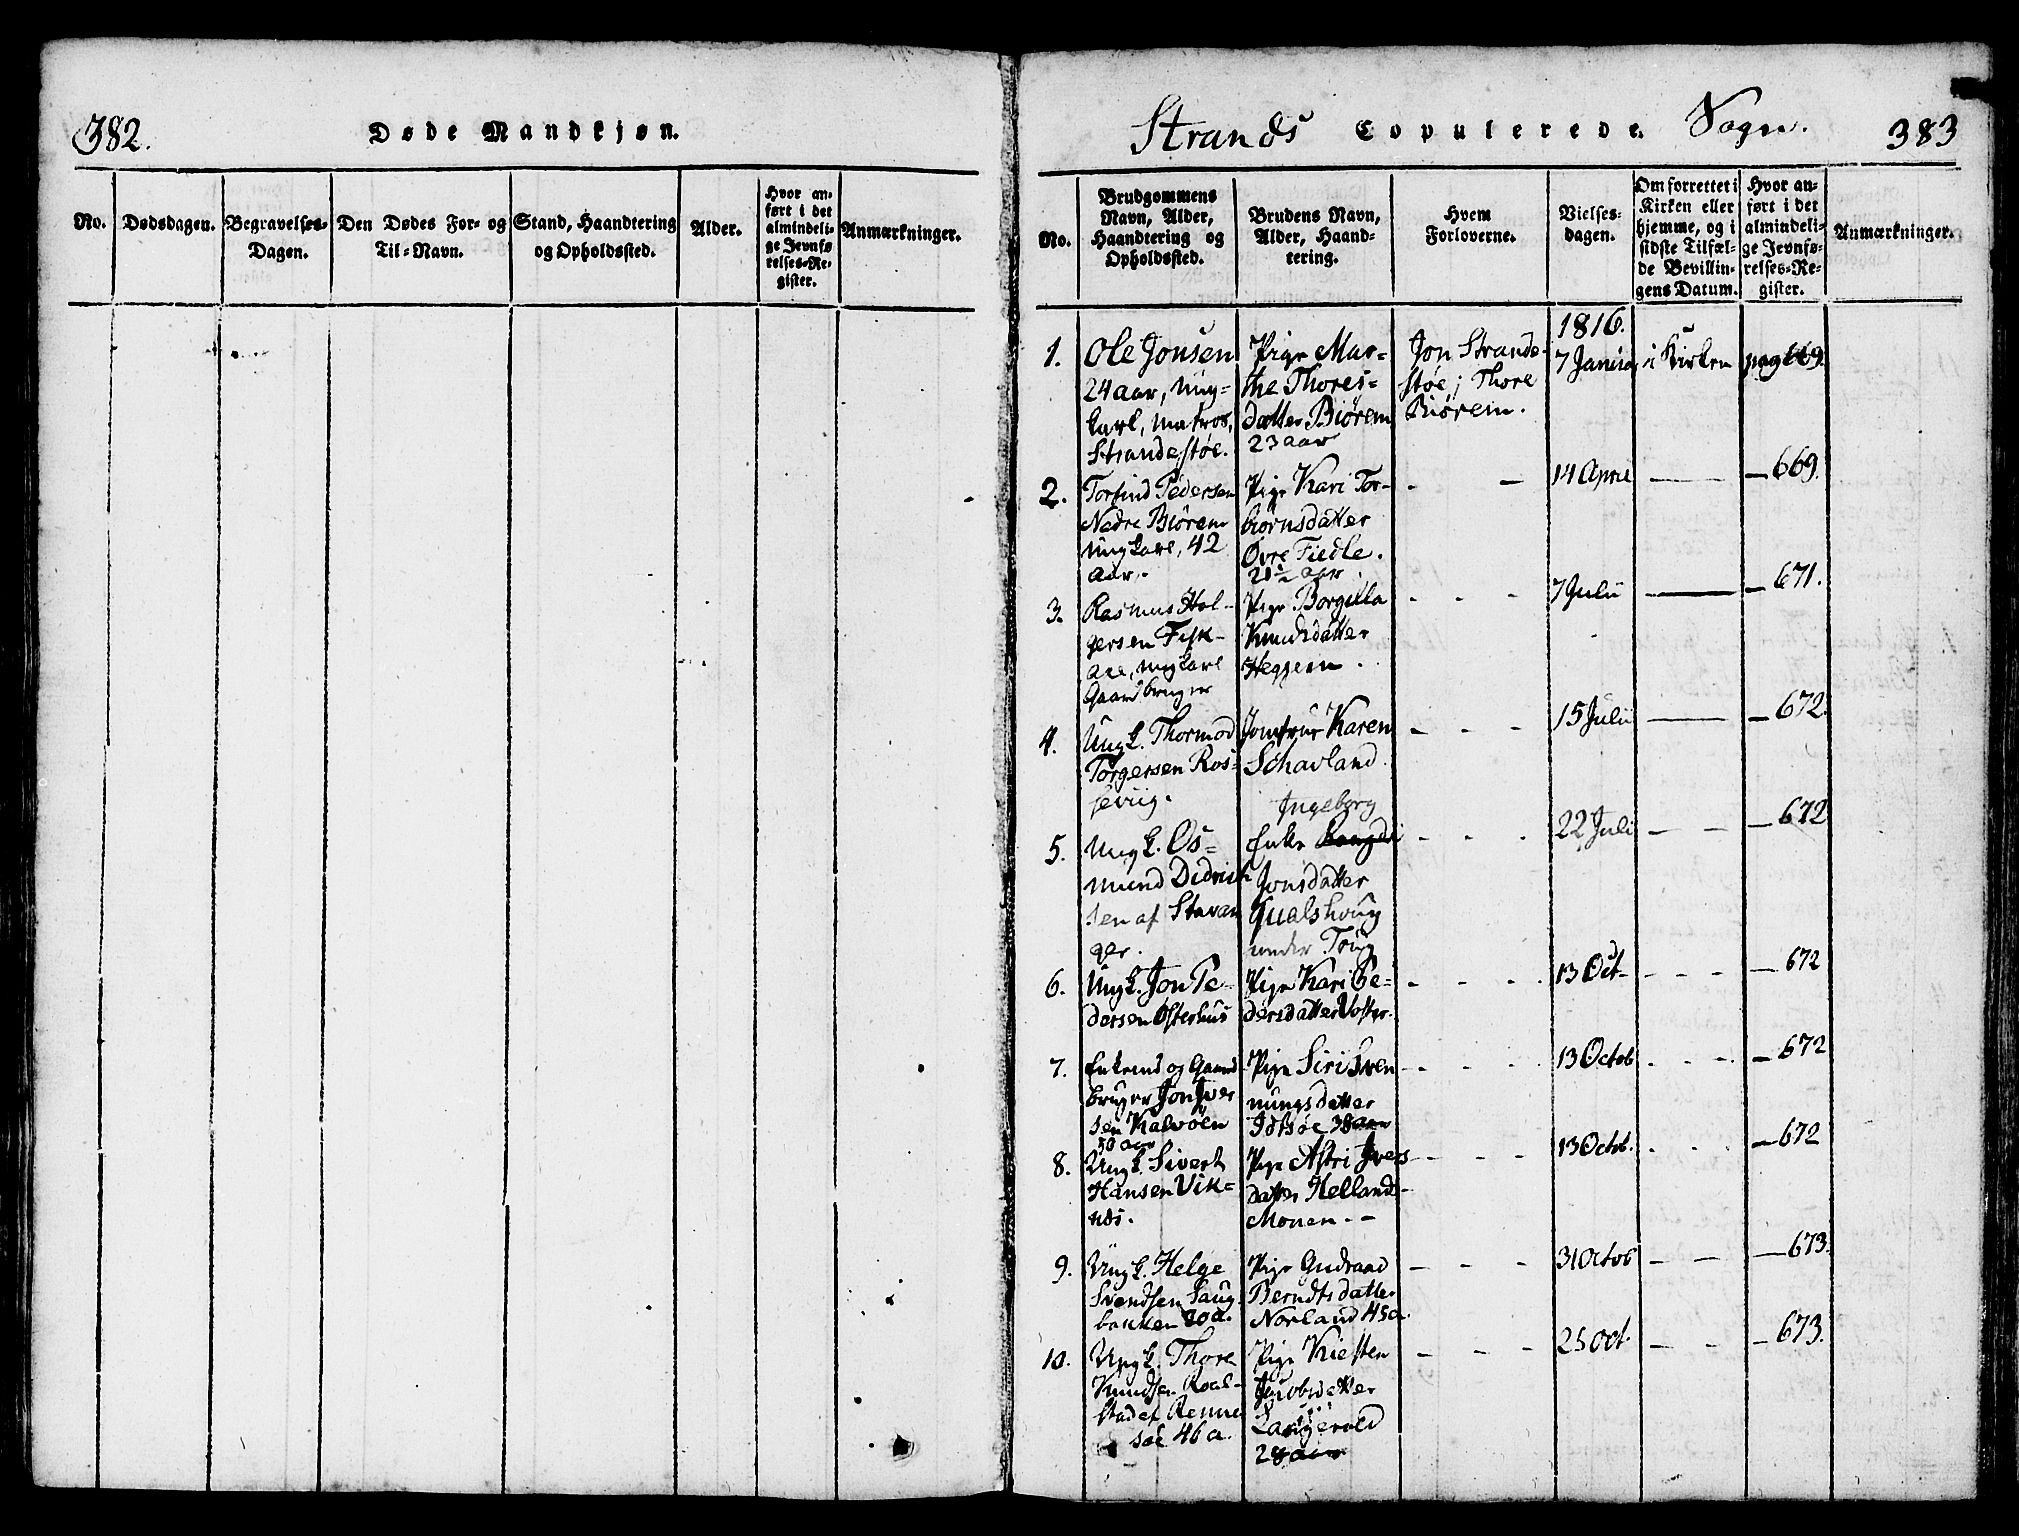 382.
Døde Mandkjøn.
No.
Dødsdagen.
Begravelses-
Dagen.
Den Dødes For- og
Til-Navn.
Stand, Haandtering
og Opholdssted.
Alder.
Hvor an-
ført i det
almindeli-
ge Jevnfø
relses-Re-
gister.
Anmærkninger.
Strands Copulerede. Sogn.
383
No.
Brudgommens
Navn, Alder,
Haandtering og
Opholdssted.
Brudens Navn,
Alder, Haand-
tering.
Hvem
Forloverne.
Vielses-
dagen.
Om forrettet i
Kirken eller
hjemme, og i
sidste Tilfæl-
de Bevillin-
gens Datum.
Hvor an-
ført i det
almindeli-
ge Jevnfø-
relses-Re-
gister.
Anmærkninger.
1.
Ole Jonsen
24 aar, Ung-
karl, Matros,
Strandestøe.
Pige Mar-
the Thores-
datter Biørem
23 aar
Jon Strande-
støe; Thore
Biørem.
1816.
7 Januar
i Kirken
pag 669.
2.
Torfind Pedersen
Nedre Biørem
Ungkarl, 42
aar.
Pige Kari Tor-
biørnsdatter
Øvre Fiedle.
21½ aar.
- -
14 April
—
— 669.
3.
Rasmus Hol-
gersen Fisk-
aae, Ungkarl
Gaardbruger
Pige Borgilla
Knudsdatter
Heggem.
- - -
7 Julii
—
— 671.
4.
Ungk. Thormod
Torgersen Ros-
seviig.
Jomfrue Karen
Schavland.
- - -
15 Julii
—
— 672.
5.
Ungk. Os-
mund Didrich
sen af Stavan
ger.
Ingeborg
Enke
Jonsdatter
Hualshoug
under Toug
- - -
22 Juli
— -
— 672
6.
Ungk. Jon Pe-
dersen Østerhus
Pige Kari Pe-
dersdatter Voster.
- - -
13 Oct-
- - -
— 672
7.
Enkemd og Gaard
bruger Jon Iver
sen Kalvøen
50 aar
Pige Siri Sven
nungsdatter
Idsøe 38 aar
- - -
13 Octob
- - -
— 672
8.
Ungk. Sivert
Hansen Vik-
nes.
Pige Astri Ivers
datter Helland-
Monen. -
- - -
13 Octb.
- - -
— 672
9.
Ungk. Helge
Svendsen Haug-
bakken 20 a.
Pige Gudraad
Berndtsdatter
Norland 45 a.
- - -
31 Octob
- -
— 673.
10.
Ungk. Thore
Knudsen Roal-
stad af Renne
søe 46 a.
Pige Kiesten
Jacobsdatter
Langevold
28 aar
- - -
25 Oct.
- -
— 673.